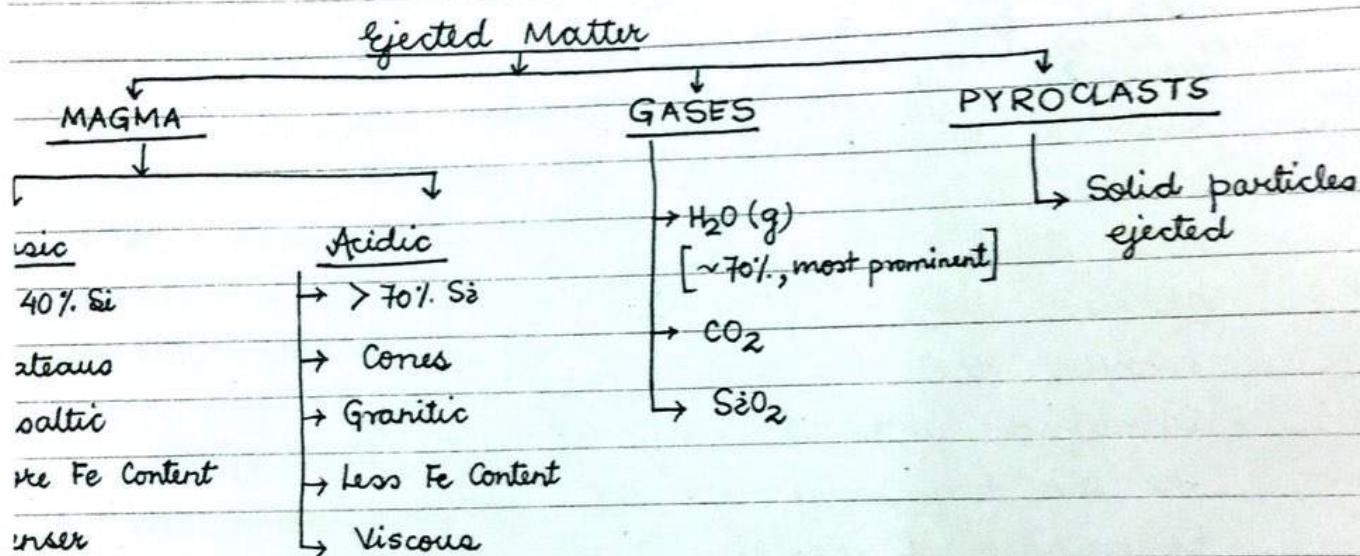 Ejected Matter
MAGMA
GASES
PYROCLASTS
sic
40% Si
ateaus
saltic
re Fe Content
nser
Acidic
> 70% Si
Cones
Granitic
Less Fe Content
Viscous
H₂O (g)
[~70%, most prominent]
CO₂
SiO₂
Solid particles
ejected